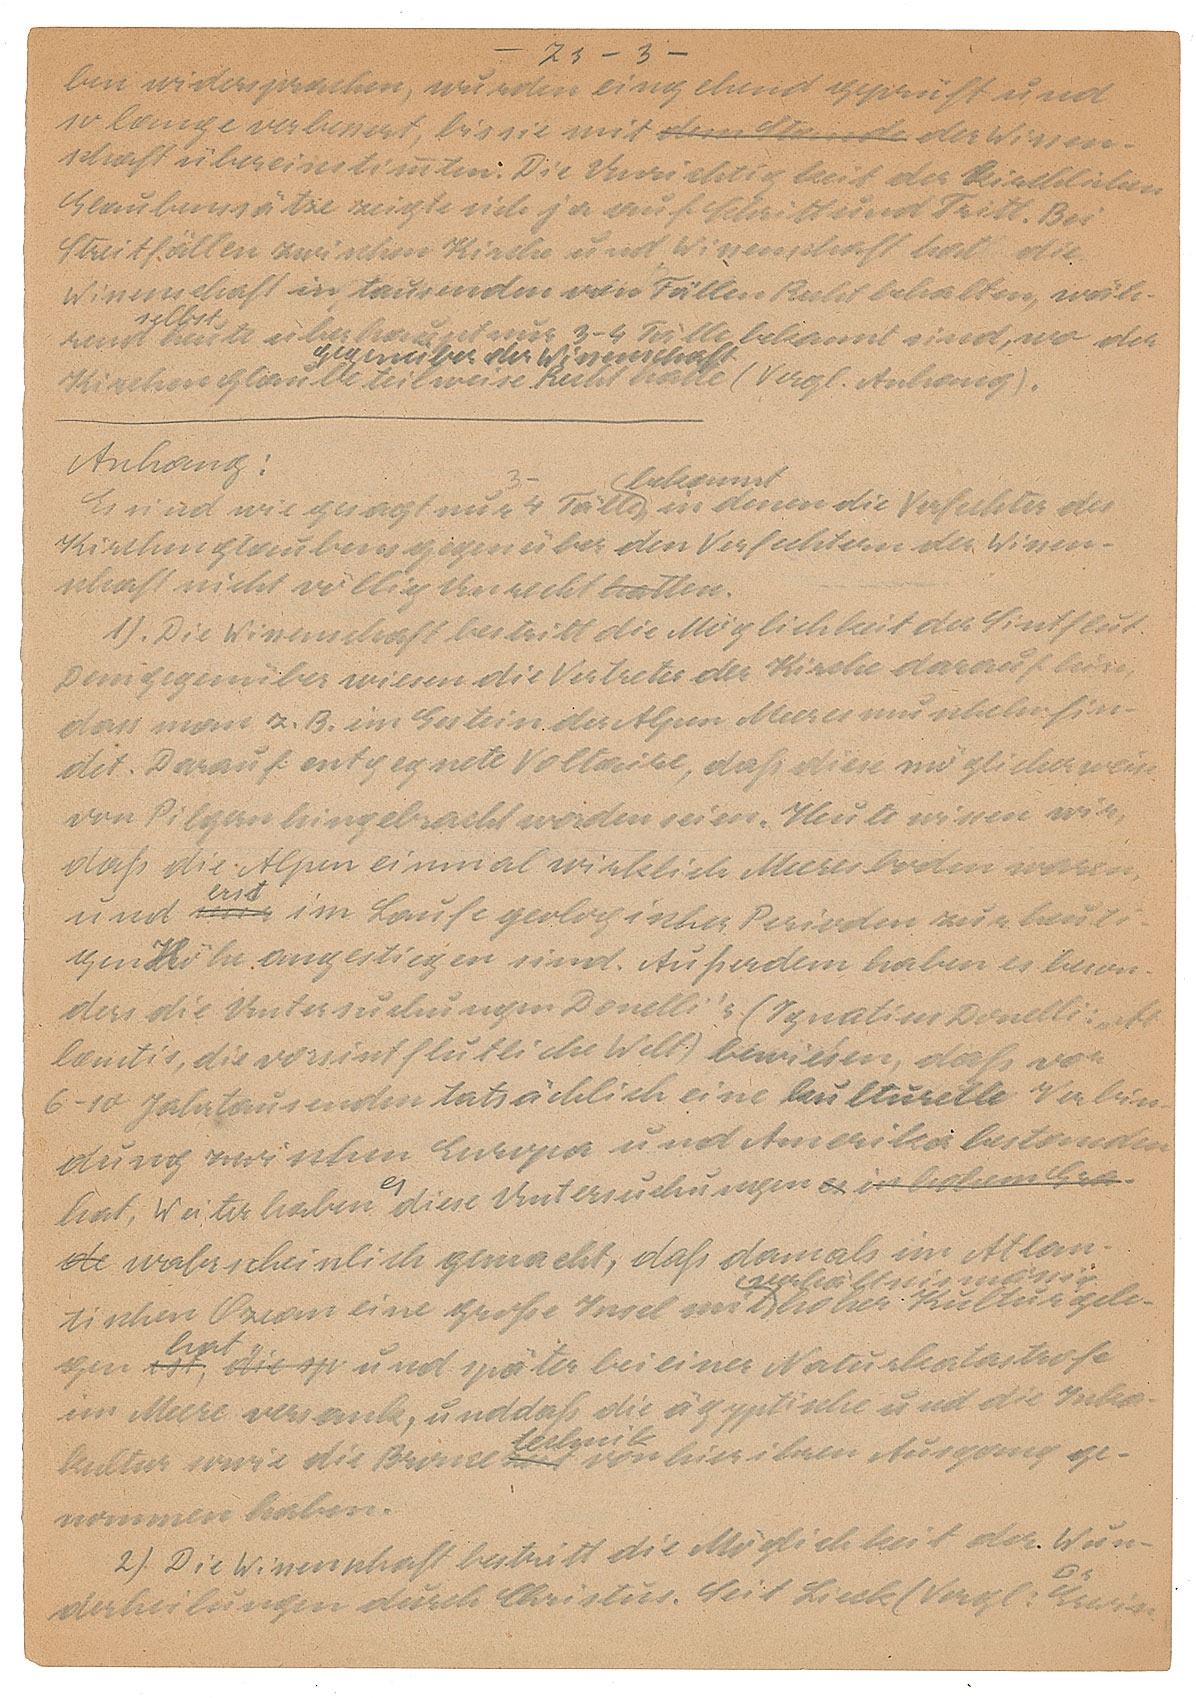 - 23 - 3 -
ben widersprachen, wurden eingehend geprüft und
so lange verbessert, bis sie mit dem Stande der Wissen-
schaft übereinstimmten. Die Unrichtigkeit der kirchlichen
Glaubenssätze zeigte sich ja auf Schritt und Tritt. Bei
Streitfällen zwischen Kirche und Wissenschaft hat die
Wissenschaft in tausenden von Fällen Recht behalten, wäh-
selbst
rend heute überhaupt nur 3-4 Fälle bekannt sind, wo der
gegenüber der Wissenschaft
Kirchenglaube teilweise Recht hatte (Vergl. Anhang).
Anhang:
3- bekannt
Es sind wie gesagt nur 4 Fälle, in denen die Verfechter des
Kirchenglaubens gegenüber den Verfechtern der Wissen-
schaft nicht völlig Unrecht hatten.
1). Die Wissenschaft bestritt die Möglichkeit der Sintflut.
Demgegenüber wiesen die Vertreter der Kirche darauf hin,
dass man z. B. im Gestein der Alpen Meeresmuscheln fin-
det. Darauf entgegnete Voltaire, daß diese möglicherweise
von Pilgern hingebracht worden seien. Heute wissen wir,
daß die Alpen einmal wirklich Meeresboden waren,
erst
und nur im Laufe geologischer Perioden zur heuti-
gen Höhe angestiegen sind. Außerdem haben es beson-
ders die Untersuchungen Donelli's (Ignatius Donelli: „At-
lantis, die vorsintflutliche Welt) bewiesen, daß vor
6-10 Jahrtausenden tatsächlich eine kulturelle Verbin-
dung zwischen Europa und Amerika bestanden
es
hat. Weiter haben diese Untersuchungen es in hohem Gra-
de wahrscheinlich gemacht, daß damals im Atlan-
verhältnismässig
tischen Ozean eine große Insel mit hoher Kultur gele-
hat
gen ist, die sp und später bei einer Naturkatastrofe
im Meere versank, und daß die ägyptische und die Inka-
technik
kultur sowie die Bronze von hier ihren Ausgang ge-
nommen haben.
2). Die Wissenschaft bestritt die Möglichkeit der Wun-
Dr
derheilungen durch Christus. Seit Liek (Vergl: Erwin